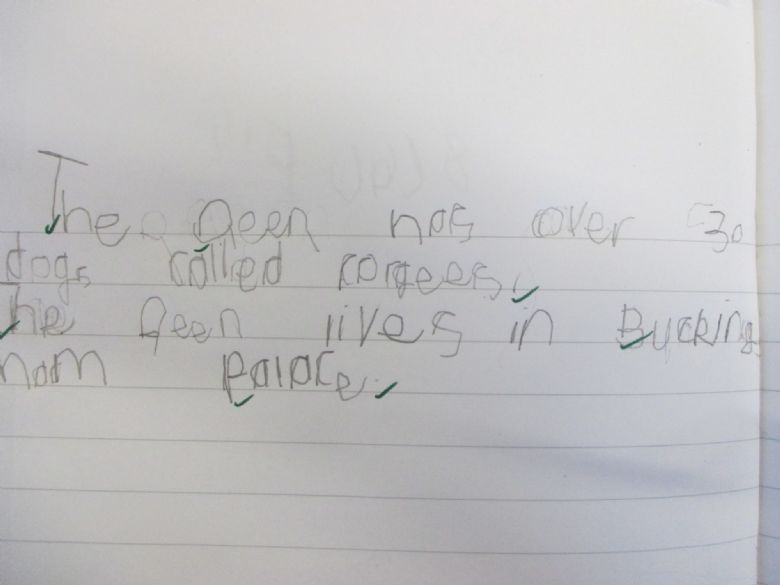 The Qeen has over 30
dogs called corgees.
The Qeen lives in Bucking
ham Palace.